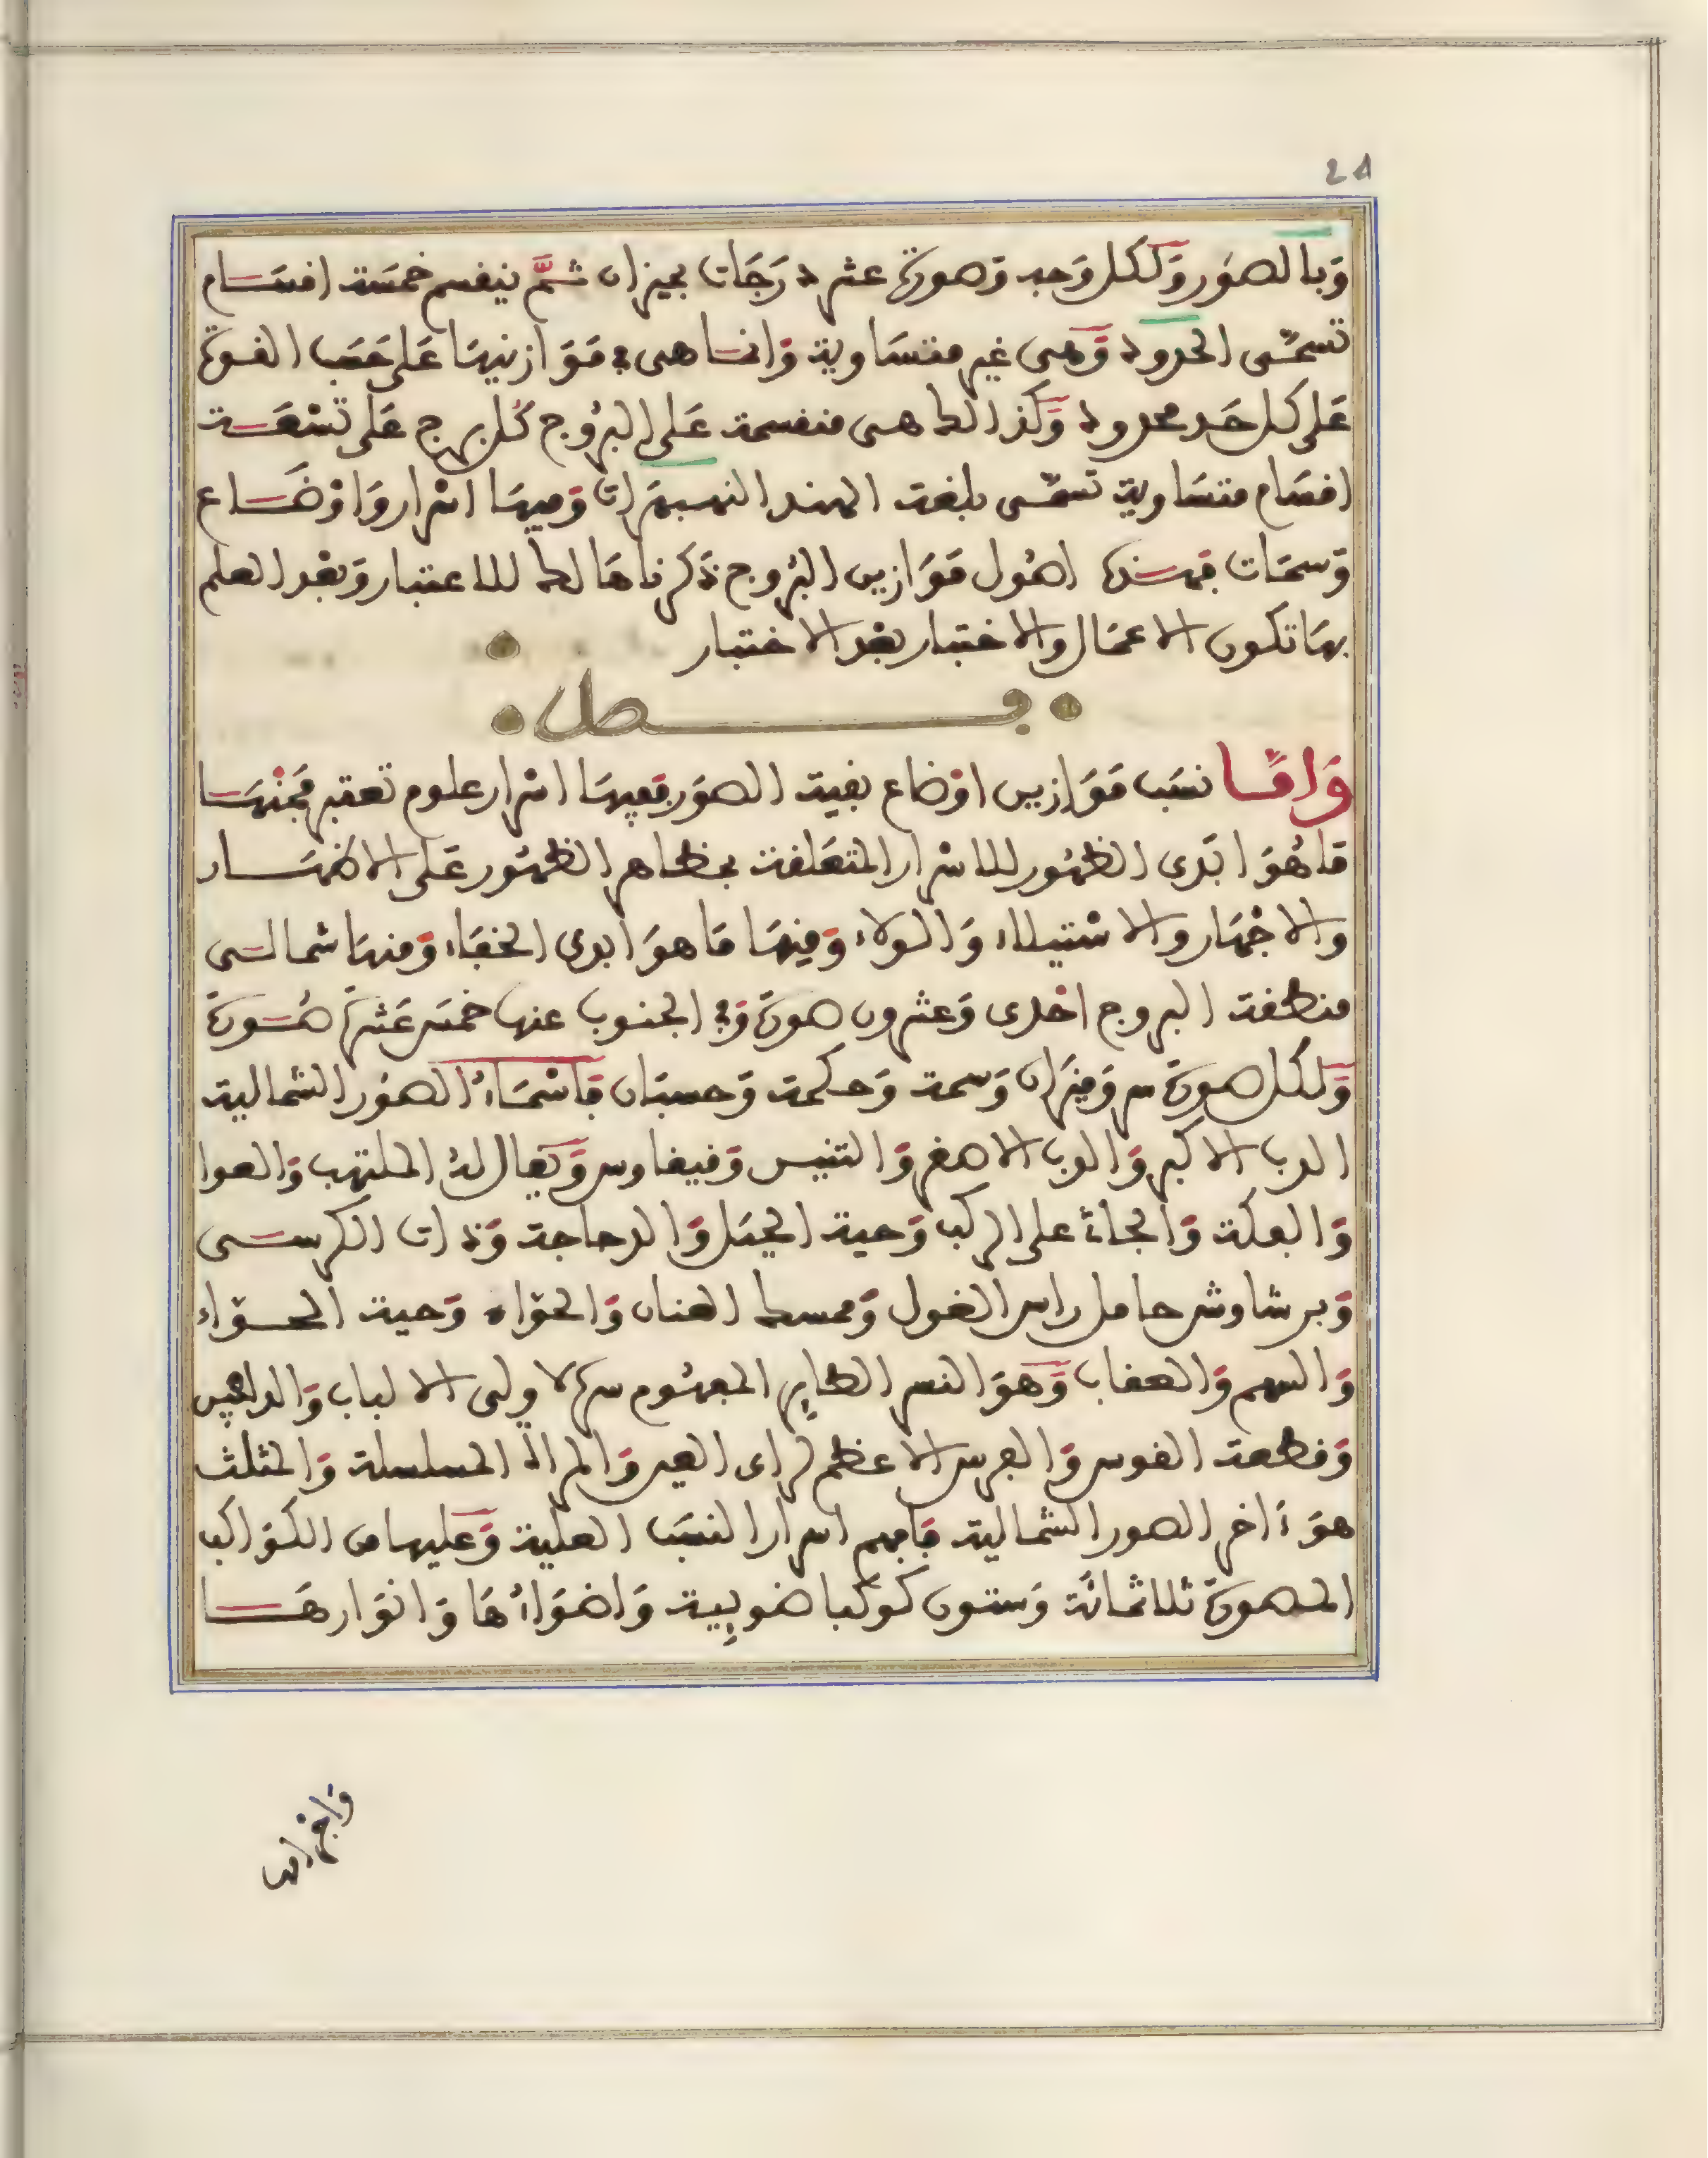 24
وبالصور ولكل وجه وصورة عشر درجات بميزان ثم ينقسم خمسة اقسام
تسمى الحدود وهي غير متساوية وانما هي في موازينها على حسب القوة
على كل حد محدود وكذالك هي منقسمة على البروج كل برج على تسعة
اقسام متساوية تسمى بلغة الهند النهبهرات وفيها اسرار واوضاع
وسمات فهذه اصول موازين البروج ذكرناها لك للاعتبار وبعد العلم
بها تكون الاعمال والاختبار بعد الاختبار
فصل
واما نسب موازين اوضاع بقية الصور ففيها اسرار علوم تعتبر فمنها
ما هو ابدى الظهور للاسرار المتعلقة بمظاهر الظهور على الاظهار
والاجهار والاستيلاء والولاء ومنها ما هو ابدى الخفاء ومنها شمالى
منطقة البروج احدى وعشرون صورة وفي الجنوب عنها خمس عشرة صورة
ولكل صورة سر وميزان وسمة وحكمة وحسبان فاسماء الصور الشمالية
الدب الاكبر والدب الاصغر والتنين وفيفاوس ويقال له الملتهب والعوا
والفكة والجاثي على الركب وحية الحيل والدجاجة وذات الكرسى
وبرشاوش حامل راس الغول وممسك العنان والحواء وحية الحواء
والسهم والعقاب وهو النسر الطاير المفهوم سره لاولى الالباب والدلفين
وقطعة الفوس والفرس الاعظم لراى العين والمراة المسلسلة والمثلث
هو ءاخر الصور الشمالية فافهم اسرار النسب العلية وعليها من الكواكب
المصورة ثلاثمائة وستون كوكبا ضويية واضواؤها وانوارها
واجرامها